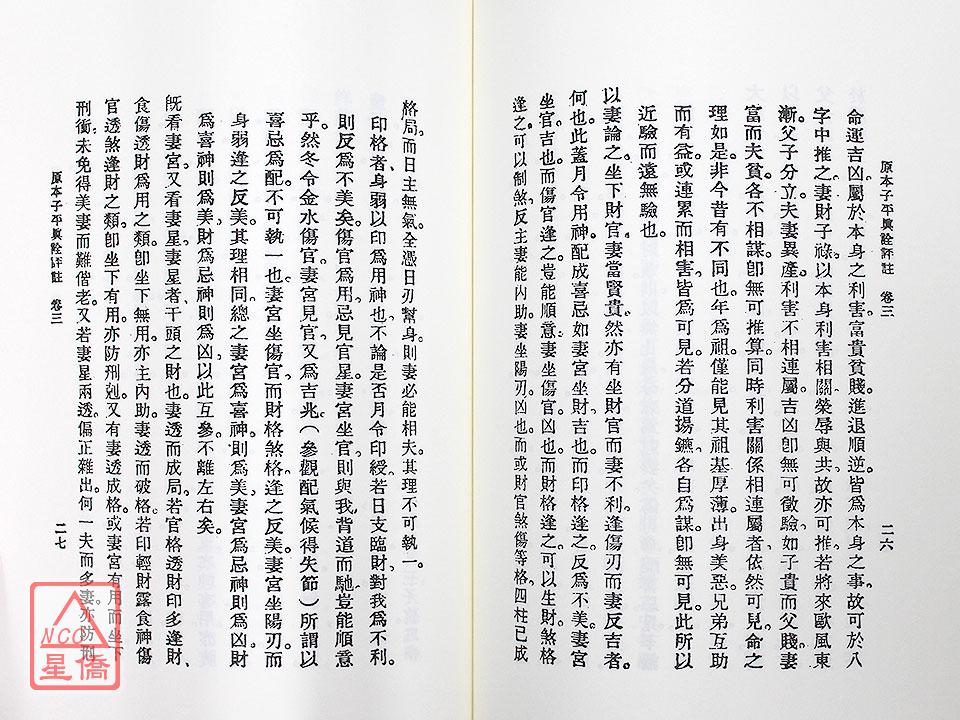 原本子平眞詮評註　卷三
二六
命運吉凶屬於本身之利害富貴貧賤進退順逆皆爲本身之事。故可於八
字中推之。妻財子祿以本身利害相關榮辱與共故亦可推若將來歐風東
漸。父子分立。夫妻異產。利害不相連屬。吉凶卽無可徵驗。如子貴而父賤。妻
富而夫貧。各不相謀卽無可推算。同時利害關係相連屬者依然可見命之
理如是。非今昔有不同也。年爲祖。僅能見其祖基厚薄。出身美惡。兄弟互助
而有益。或連累而相害。皆爲可見。若分道揚鑣。各自爲謀。卽無可見。此所以
近驗而遠無驗也。
以妻論之。坐下財官妻當賢貴。然亦有坐財官而妻不利。逢傷刃而妻反吉者。
何也。此蓋月令用神配成喜忌。如妻宮坐財吉也。而印格逢之。反爲不美。妻宮
坐官吉也。而傷官逢之。豈能順意。妻坐傷官。凶也。而財格逢之。可以生財煞格
逢之。可以制煞。反主妻能內助。妻坐陽刃。凶也。而或財官煞傷等格。四柱已成
格局。而日主無氣全憑日刃幫身則妻必能相夫其理不可執一。
印格者。身弱以印爲用神也。不論是否月令印綬若日支臨財對我爲不利。
則反爲不美矣。傷官爲用忌見官星。妻宮坐官則與我背道而馳豈能順意
乎。然冬令金水傷官妻宮見官又爲吉兆（參觀配氣候得失節）所謂以
喜忌爲配不可執一也。妻宮坐傷官而財格煞格逢之反美。妻宮坐陽刃而
身弱逢之反美其理相同。總之妻宮爲喜神則爲美妻宮爲忌神則爲凶財
爲喜神則爲美。財爲忌神則爲凶以此互參不離左右矣。
旣看妻宮又看妻星。妻星者干頭之財也。妻透而成局若官格透財印多逢財。
食傷透財爲用之類。卽坐下無用亦主內助。妻透而破格若印輕財露食神傷
官透煞逢財之類。卽坐下有用。亦防刑剋。又有妻透成格或妻宮有用而坐下
刑衝未免得美妻而難偕老。又若妻星兩透。偏正雜出何一夫而多妻亦防刑
原本子平眞詮評註　卷三
二七
NCC
星僑